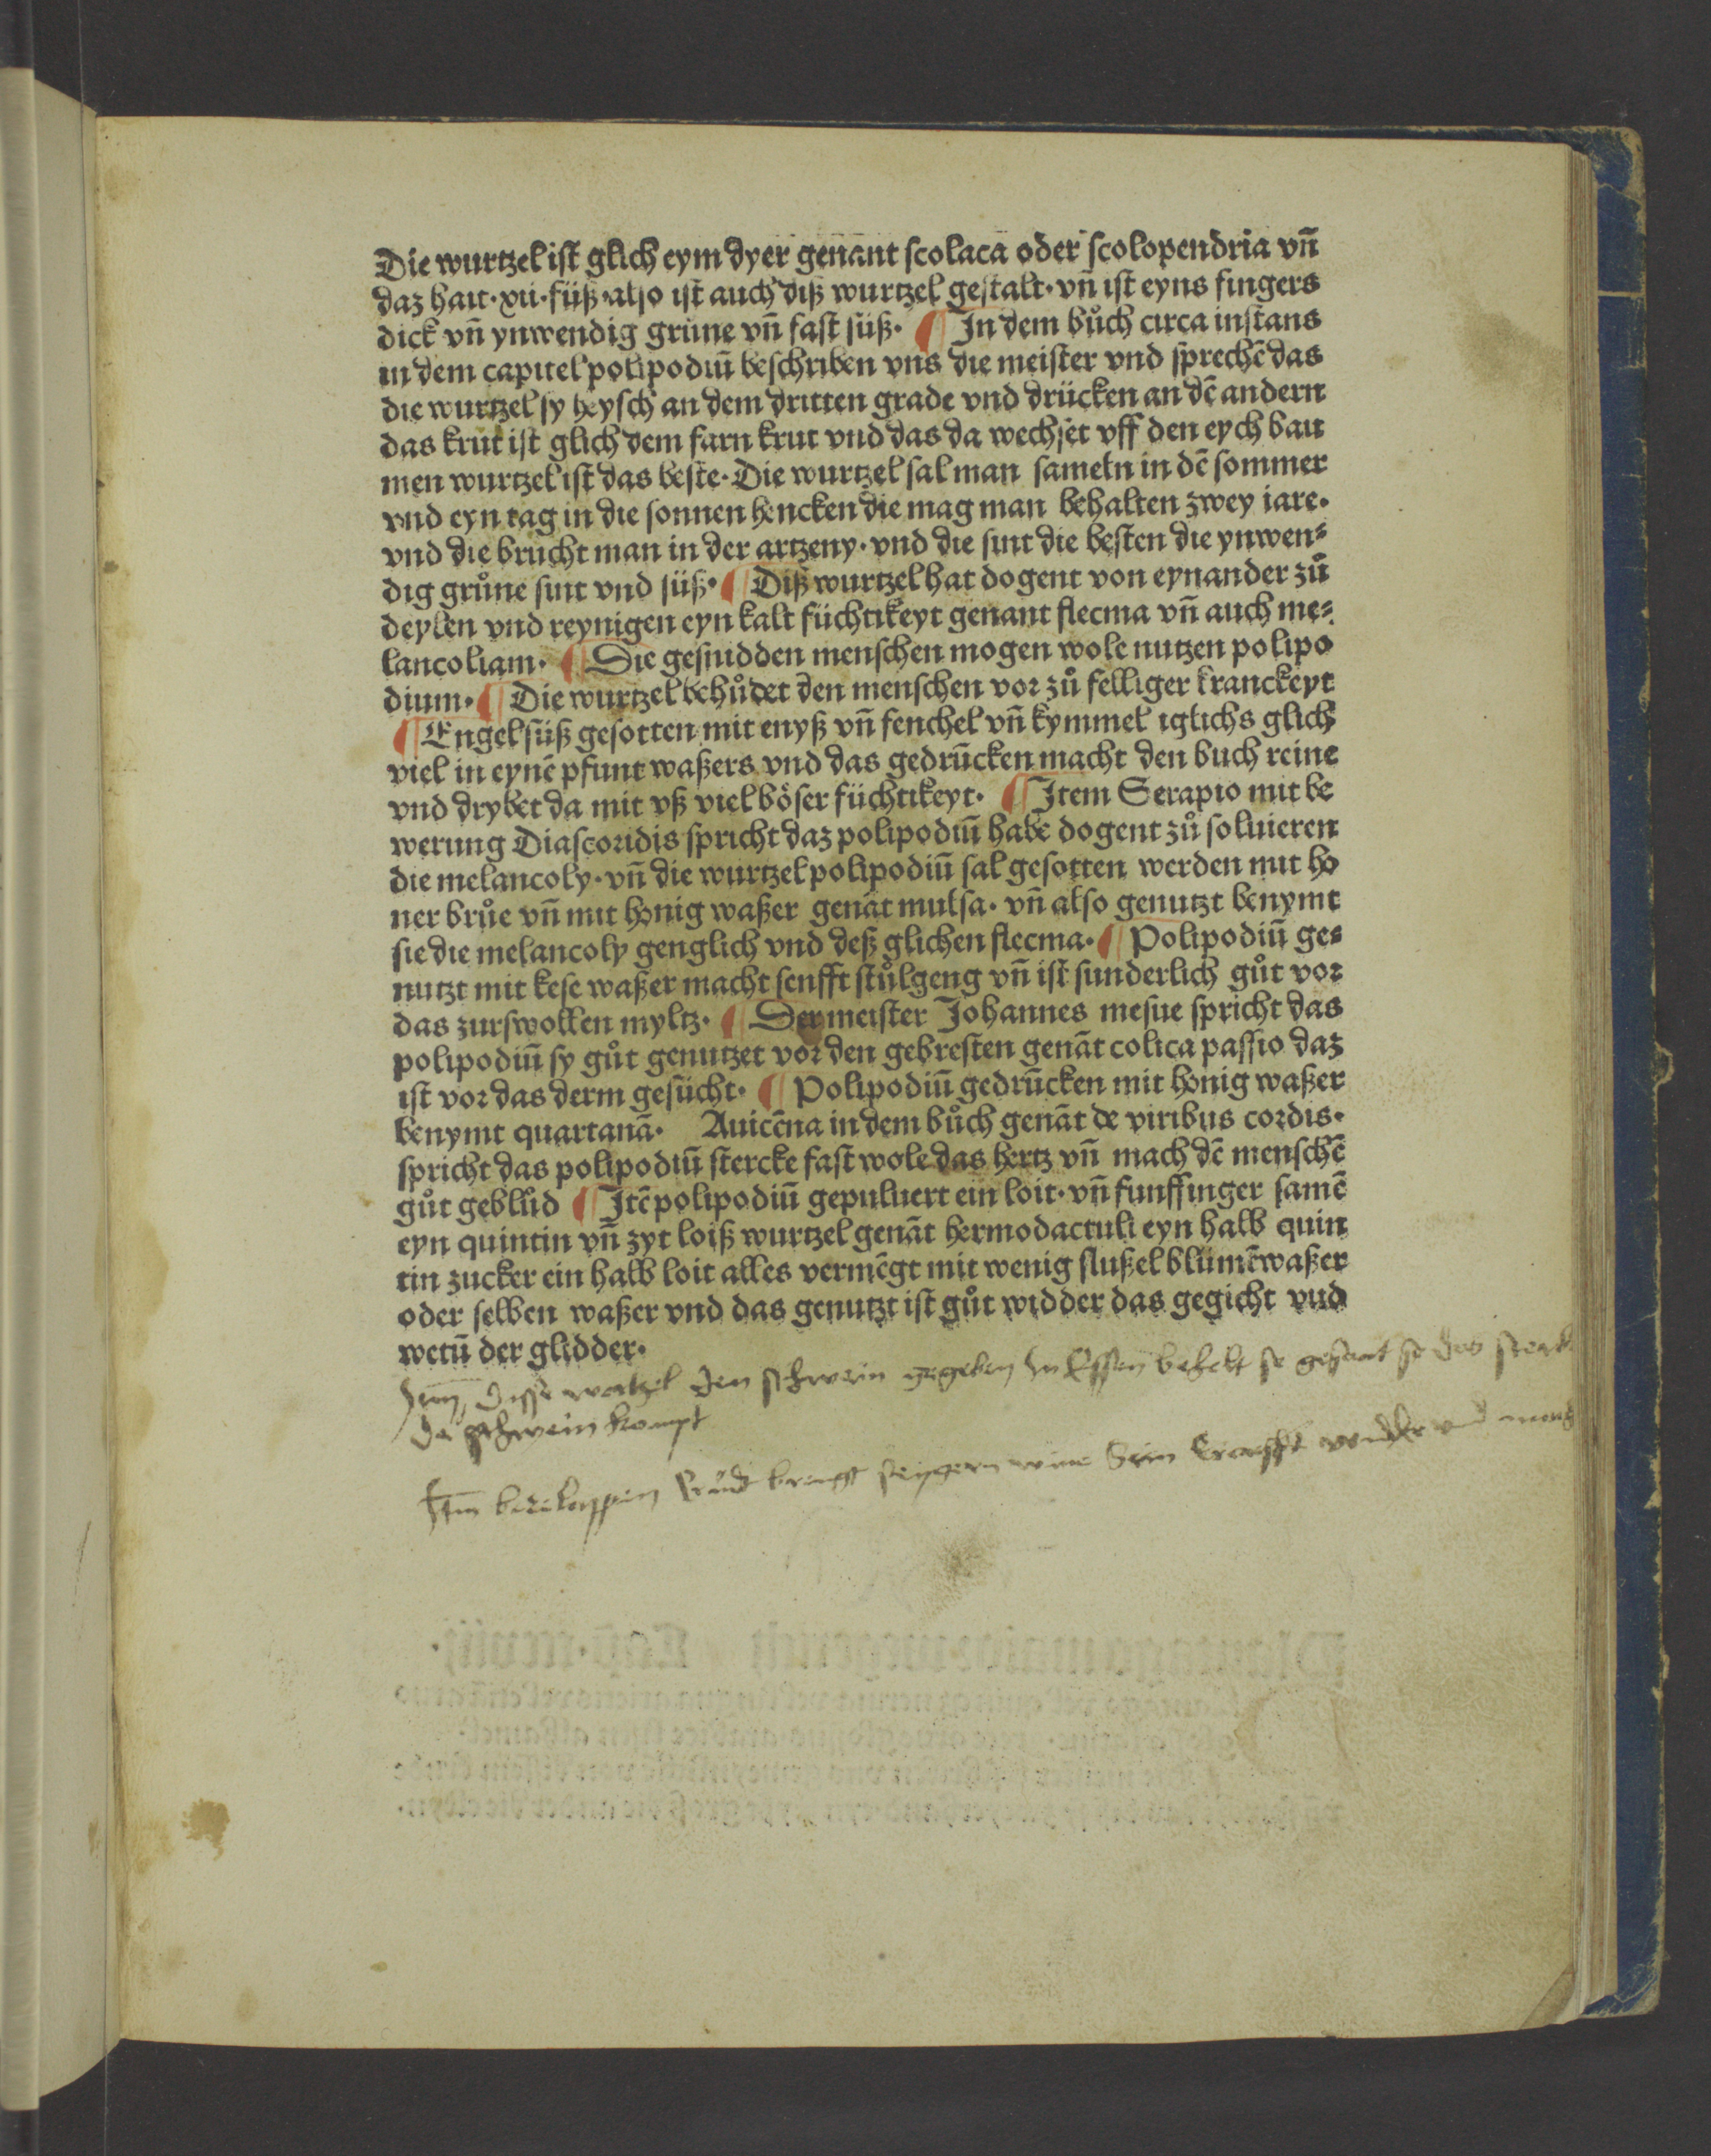 Die wurtzel ist glich eym dyer genant scolaca oder scolopendria vñ
daz hait·xii·füß·also ist auch diß wurtzel gestalt·vñ ist eyns fingers
dick vñ ynwendig grüne vñ fast süß· ¶ In dem bůch circa instans
in dem capitel polipodiū beschriben vns die meister vnd sprechē das
die wurtzel sy heysch an dem dritten grade vnd drücken an dē andern
das krut ist glich dem farn krut vnd das da wechset vff den eych bau
men wurtzel ist das beste·Die wurtzel sal man sameln in dē sommer
vnd eyn tag in die sonnen hencken die mag man behalten zwey iare·
vnd die brucht man in der artzeny·vnd die sint die besten die ynwen⸗
dig grůne sint vnd süß·¶ Diß wurtzel hat dogent von eynander zů
deylen vnd reynigen eyn kalt füchtikeyt genant flecma vñ auch me⸗
lancoliam· ¶ Die gesnidden menschen mogen wole nutzen polipo
dium·¶ Die wurtzel behůdet den menschen vor zů felliger kranckeyt
¶ Engelsüß gesotten mit enyß vñ fenchel vñ kymmel iglichs glich
viel in eynē pfunt waßers vnd das gedrücken macht den buch reine
vnd drybet da mit vß viel böser füchtikeyt· ¶ Item Serapio mit be
werung Diascoridis spricht daz polipodiū habe dogent zů soluieren
die melancoly·vñ die wurtzel polipodiū sal gesotten werden mit ho
ner brůe vñ mit honig waßer genāt mulsa·vñ also genutzt benymt
sie die melancoly genglich vnd deß glichen flecma·¶ Polipodiū ge⸗
nutzt mit kese waßer macht senfft stůlgeng vñ ist sunderlich gůt vor
das zurswollen myltz· ¶ Der meister Johannes mesue spricht das
polipodiū sy gůt genutzet vor den gebresten genāt colica passio daz
ist vor das derm gesücht· ¶ Polipodiū gedrücken mit honig waßer
benymt quartanā· Auicēna in dem bůch genāt de viribus cordis·
spricht das polipodiū stercke fast wole das hertz vñ mach dē menschē
gůt geblůd ¶ Itē polipodiū gepuluert ein loit·vñ funffinger samē
eyn quintin vñ zyt loiß wurtzel genāt hermodactuli eyn halb quin
tin zucker ein halb loit alles vermēgt mit wenig slußel blümē waßer
oder selben waßer vnd das genutzt ist gůt widder das gegicht vnd
wetū der glidder·
disse wortzel den schwein gegeben zu Essen behelt se gesant so das
de schwein kompt
krudt wine vnd